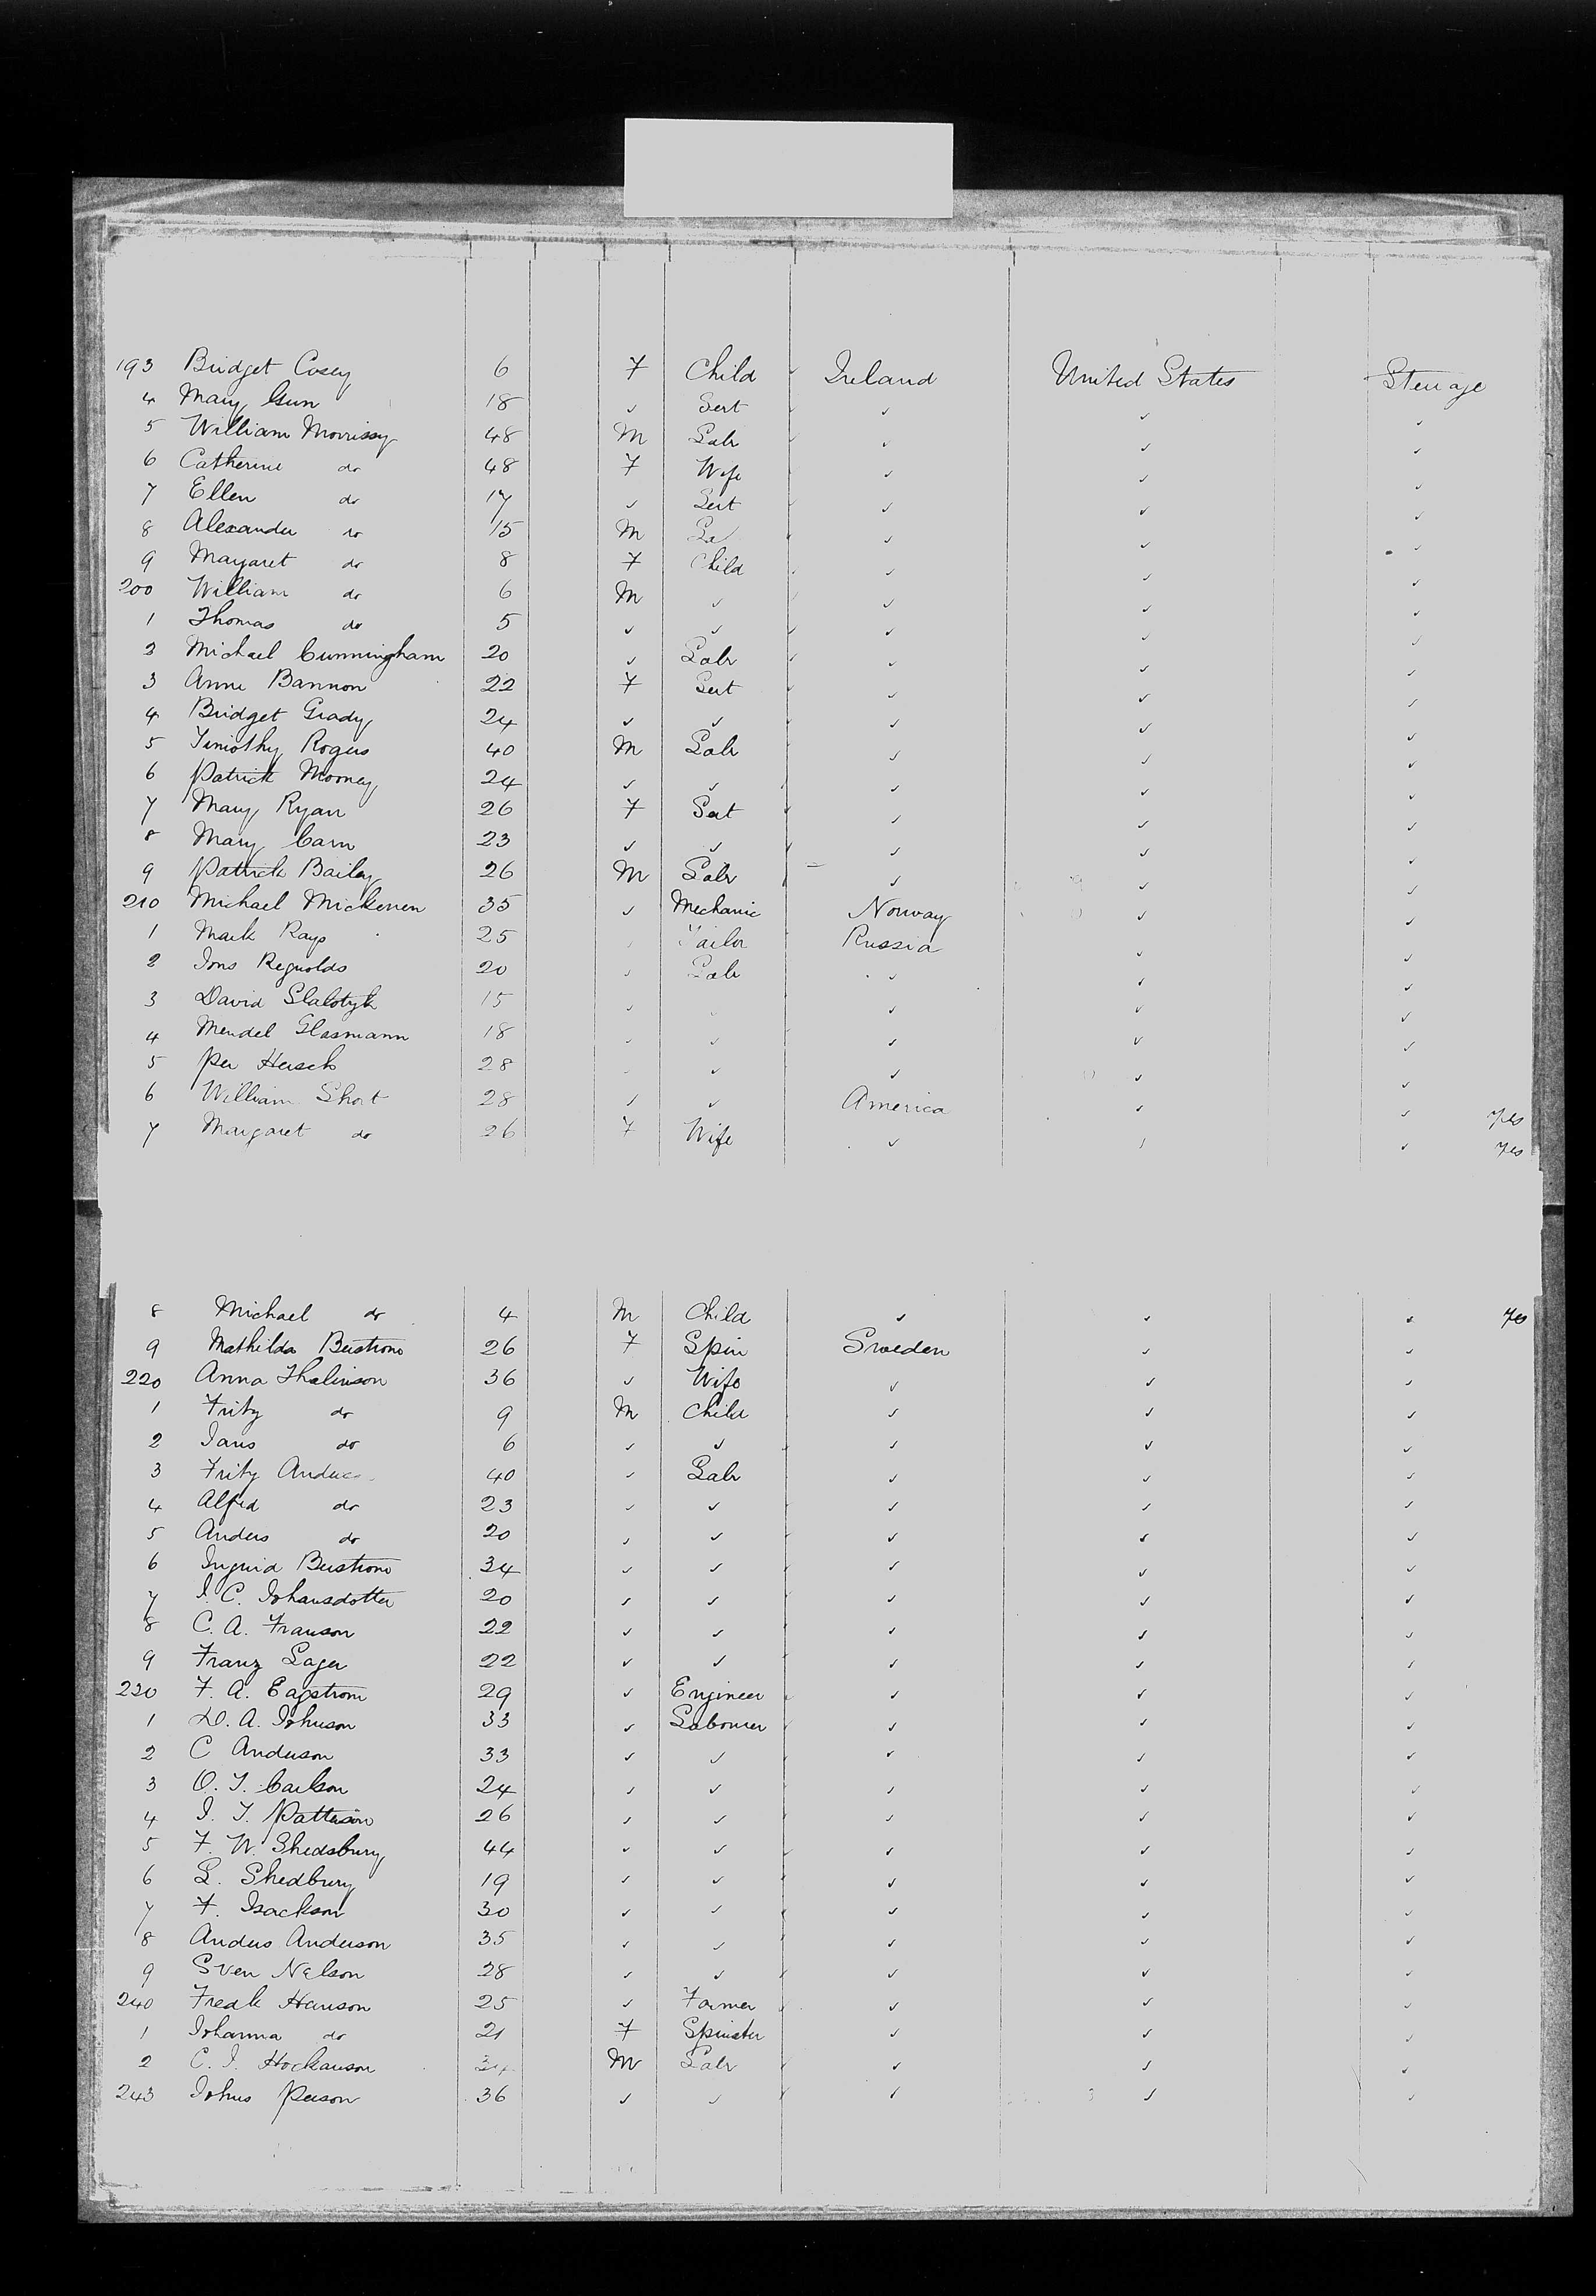 193 Bridget Cosey 6 F Child ✓ Ireland United States Steerage
4 Mary Gunn 18 ✓ Servt ✓ ✓ ✓
5 William Morrissy 48 M Labr ✓ ✓ ✓
6 Catherine do 48 F Wife ✓ ✓ ✓
7 Ellen do 17 ✓ Servt ✓ ✓ ✓
8 Alexander do 15 M La ✓ ✓ ✓
9 Margaret do 8 F Child ✓ ✓ ✓
200 William do 6 M ✓ ✓ ✓ ✓
1 Thomas do 5 ✓ ✓ ✓ ✓ ✓
2 Michael Cunningham 20 ✓ Labr ✓ ✓ ✓
3 Anne Bannon 22 F Servt ✓ ✓ ✓
4 Bridget Grady 24 ✓ ✓ ✓ ✓ ✓
5 Timothy Rogers 40 M Labr ✓ ✓ ✓
6 Patrick Mooney 24 ✓ ✓ ✓ ✓ ✓
7 Mary Ryan 26 F Servt ✓ ✓ ✓
8 Mary Carn 23 ✓ ✓ ✓ ✓ ✓
9 Patrick Bailey 26 M Labr ✓ ✓ ✓
210 Michael Mickenen 35 ✓ Mechanic Norway ✓ ✓
1 Mark Rays 25 ✓ Tailor Russia ✓ ✓
2 Jons Regnolds 20 ✓ Labr ✓ ✓ ✓
3 David Slabotyk 15 ✓ ✓ ✓ ✓ ✓
4 Mendel Glasmann 18 ✓ ✓ ✓ ✓ ✓
5 Per Hersch 28 ✓ ✓ ✓ ✓ ✓
6 William Short 28 ✓ ✓ America ✓ ✓ Yes
7 Margaret do 26 F Wife ✓ ✓ ✓ Yes
8 Michael do 4 M Child ✓ ✓ ✓ Yes
9 Mathilda Bustrom 26 F Spin Sweden ✓ ✓
220 Anna Thalinson 36 ✓ Wife ✓ ✓ ✓
1 Fritz do 9 M Child ✓ ✓ ✓
2 Jans do 6 ✓ ✓ ✓ ✓ ✓
3 Fritz 40 ✓ Labr ✓ ✓ ✓
4 Alfred do 23 ✓ ✓ ✓ ✓ ✓
5 Anders do 20 ✓ ✓ ✓ ✓ ✓
6 Ingrid Bustrom 34 ✓ ✓ ✓ ✓ ✓
7 I. C. Johansdotter 20 ✓ ✓ ✓ ✓ ✓
8 C. A. Franson 22 ✓ ✓ ✓ ✓ ✓
9 Franz Lager 22 ✓ ✓ ✓ ✓ ✓
230 F. A. Eagstrom 29 ✓ Engineer ✓ ✓ ✓
1 D. A. Johnson 33 ✓ Labourer ✓ ✓ ✓
2 C Anderson 33 ✓ ✓ ✓ ✓ ✓
3 O. J. Carlson 24 ✓ ✓ ✓ ✓ ✓
4 I. J. Patterson 26 ✓ ✓ ✓ ✓ ✓
5 F. W. Shedsbury 44 ✓ ✓ ✓ ✓ ✓
6 L. Shedbury 19 ✓ ✓ ✓ ✓ ✓
7 F. Isackson 30 ✓ ✓ ✓ ✓ ✓
8 Anders Anderson 35 ✓ ✓ ✓ ✓ ✓
9 Sven Nelson 28 ✓ ✓ ✓ ✓ ✓
240 Fredk Hanson 25 ✓ Farmer ✓ ✓ ✓
1 Johanna do 21 F Spinster ✓ ✓ ✓
2 C. J. Hockanson 34 M Labr ✓ ✓ ✓
243 Johns Person 36 ✓ ✓ ✓ ✓ ✓